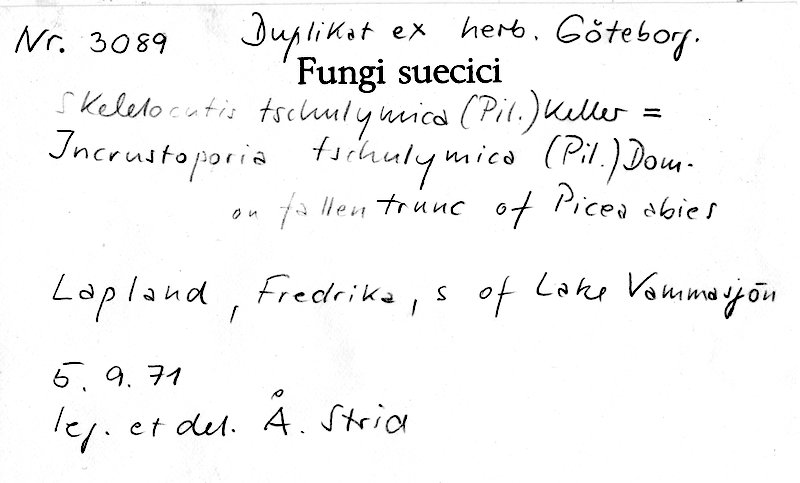 Nr. 3089 Duplikat ex herb. Göteborg.
Fungi suecici
Skeletocutis tschulymica (Pil.) Keller =
Incrustoporia tschulymica (Pil.) Dom.
on fallen trunc of Picea abies
Lapland, Fredrika, s of Lake Vammasjön
5. 9. 71
leg. et det. Å. Strid